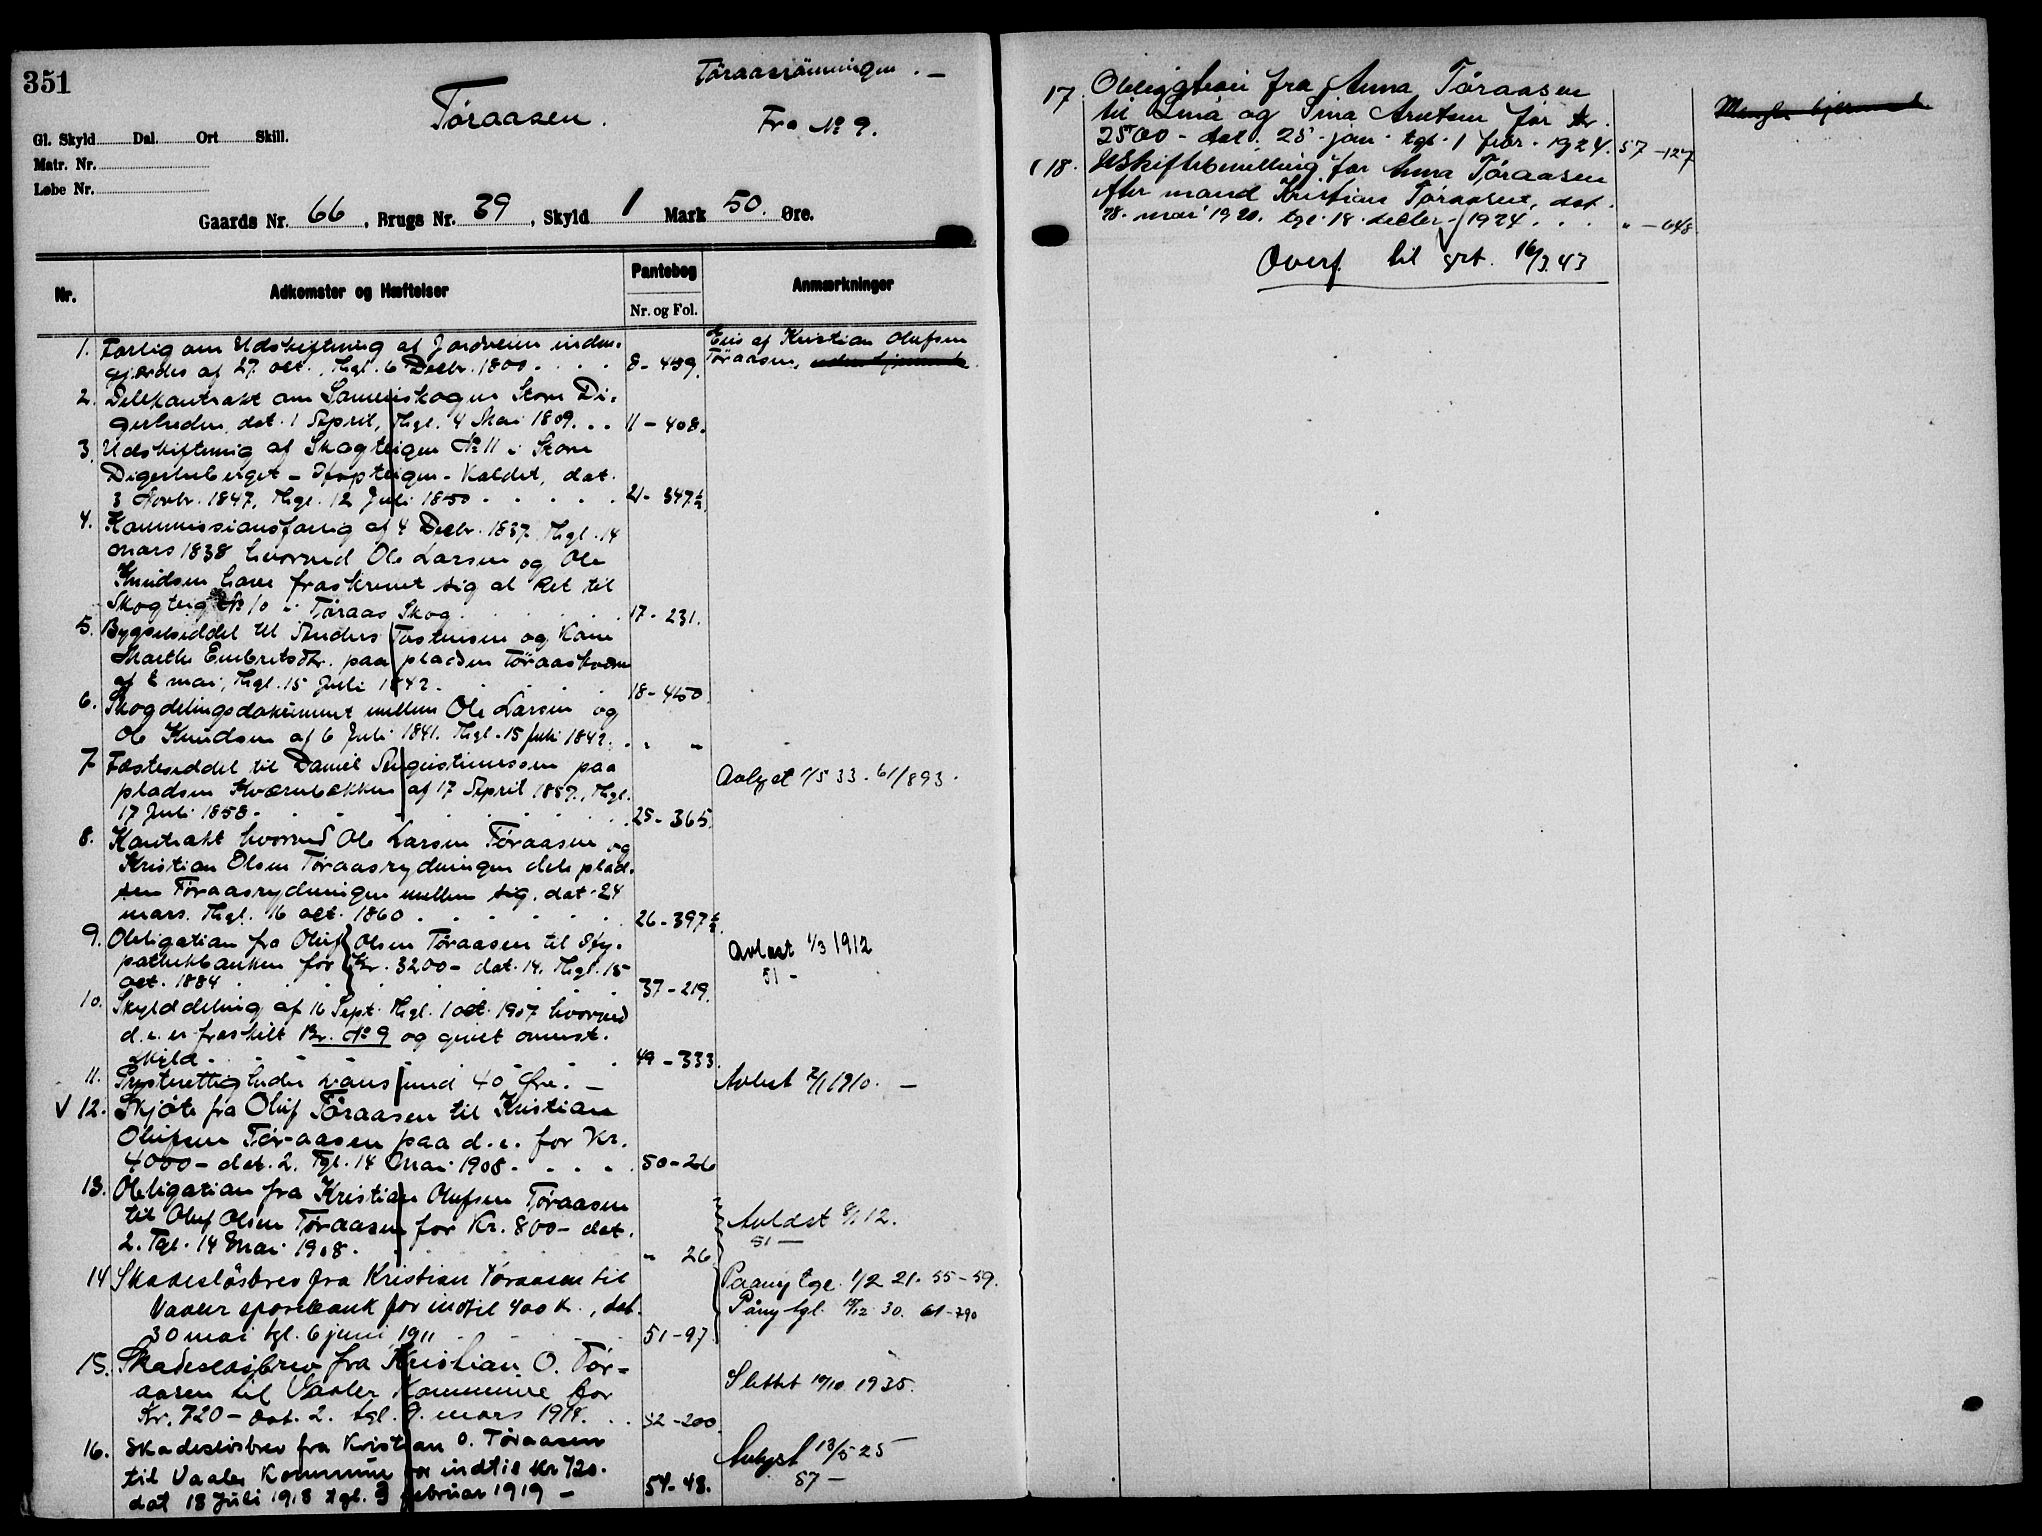 351
Tøraasrönningen . —
Tøraasen.
Fra № 9.
Gl. Skyld Dal. Ort Skill.
Matr. Nr.
Løbe Nr.
Gaards Nr. 66, Brugs Nr. 39, Skyld 1 Mark 50. Øre.
Nr. Adkomster og Hæftelser Pantebog Anmærkninger
Nr. og Fol.
1. Forlig om Udskiftning af Jordveien inden-
gjærdes af 27. oct., Thgl. 6 Decbr. 1800 8 - 459.
Eies af Kristian Olufsen
Tøraasen,
2. Delekontrakt om Sameieskogen Store Di-
gerheden, dat. 1 April, Thgl. 4 Mai 1809. 11 - 408.
3. Udskiftning af Skogteigen № 11 i Store
Digerheberget - - Kaldet, dat.
3 Novbr. 1847, Thgl. 12 Juli 1850 21 - 347
4. Kommissionsforlig af 4 Decbr. 1837. Thgl. 14
mars 1838 hvorved Ole Larsen og Ole
Knudsen have fraskrevet sig al Ret til
Skogteig № 10 i Tøraas Skog. 17 - 231.
5. Bygselseddel til Anders Tostensen og Kone
Marthe Embretsdtr. paa pladsen Tøraaskværn
af 2 mai, Thgl. 15 Juli 1842. 18 - 450
6. Skogdelingsdokument mellem Ole Larsen og
Ole Knudsen af 6 Juli 1841. Thgl. 15 Juli 1842. " "
7. Fæsteseddel til Daniel Augustinussen paa
pladsen Kværnbækken af 17 April 1857., Thgl.
17 Juli 1858. 25 - 365.
Avlyst 1/5 33. 61/893.
8. Kontrakt hvorved Ole Larsen Tøraasen og
Kristian Olsen Tøraasrydningen dele plad-
sen Tøraasrydningen mellem sig, dat. 24
mars. Thgl. 16 oct. 1860 26 - 397
9. Obligation fra Oluf Olsen Tøraasen til Hy-
pothekbanken for Kr. 3200 - dat. 14. Thgl. 15
oct. 1884 37 - 219.
Avlæst 1/3 1912
51 -
10. Skylddeling af 16 Sept. Thgl. 1 oct. 1907 hvorved
d. e. er fraskilt Br. № 9 og givet ovenst.
skyld. 49 - 333.
11. 40 Øre. —
Avlæst 2/1 1910. —
V 12. Skjöte fra Oluf Töraasen til Kristian
Olufsen Tøraasen paa d. e. for Kr.
4000 - dat. 2. Tgl. 14 Mai 1908. 50 - 26
13. Obligation fra Kristian Olufsen Tøraasen
til Oluf Olsen Tøraasen for Kr. 800 - dat.
2. Tgl. 14 Mai 1908. " 26
Avlæst 8/1 12.
51 —
14. Skadesløsbrev fra Kristian Tøraasen til
Vaaler sparebank for indtil 400 k., dat.
30 mai tgl. 6 juni 1911 51 - 97
Paany tgl. 1/2 21. 55 - 59.
Påny tgl. 15/12 30. 61 - 790
15. Skadesløsbrev fra Kristian O. Tør-
aasen til Vaaler Kommune for
Kr. 720 - dat. 2. tgl. 9. mars 1914. 52 - 200
Slettet 19/10 1935.
16. Skadesløsbrev fra Kristian O. Tøraasen
til Vaaler Kommune for indtil Kr 720.
dat 18 Juli 1918 tgl. 3 februar 1919 — 54 - 48.
Avlyst 13/5 25
57 —
17. Obligation fra Anna Tøraasen
til Lina og Sina Arntsen for kr.
2500 - dat. 25. jan. tgl. 1 febr. 1924. 57 - 127
Mangler hjemmel
18. Uskiftebevilling for Anna Tøraasen
efter mand Kristian Tøraasen, dat.
28. mai 1920, tgl. 18. decbr. 1924 " - 648
Overf. til grb. 16/3 43